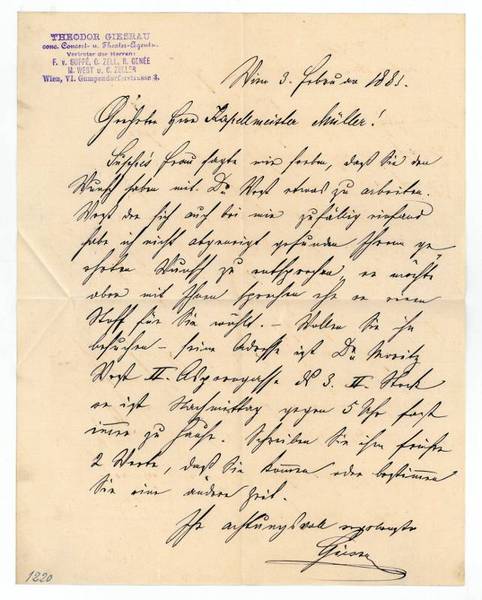 THEODOR GIESRAU
conc. Concert- u. Theater-Agent.
Vertreter der Herren:
F. v. SUPPÉ, C. ZELL, R. GENÉE
M. WEST u. C. ZELLER
Wien, VI. Gumpendorferstrasse 3.
Wien 3. Februar 188
Geehrter Herr Kapellmeister Müller!
Suppé's Frau sagte mir soeben, daß Sie den
Wunsch haben mit Dr West etwas zu arbeiten.
West der sich auch bei mir zufällig einfand
habe ich nicht abgeneigt gefunden Ihrem ge
ehrten Wunsch zu entsprechen, er möchte
aber mit Ihnen sprechen ehe er einen
Stoff für Sie wählt. – Wollen Sie ihn
besuchen – seine Adresse ist Dr. Moritz
West II. Asperngasse No 3. II. Stock
er ist Nachmittag gegen 5 Uhr fast
immer zu Hause. Schreiben Sie ihm früher
2 Worte, daß Sie kommen oder bestimmen
Sie eine andere Zeit.
Ihr achtungsvoll ergebenster
1220